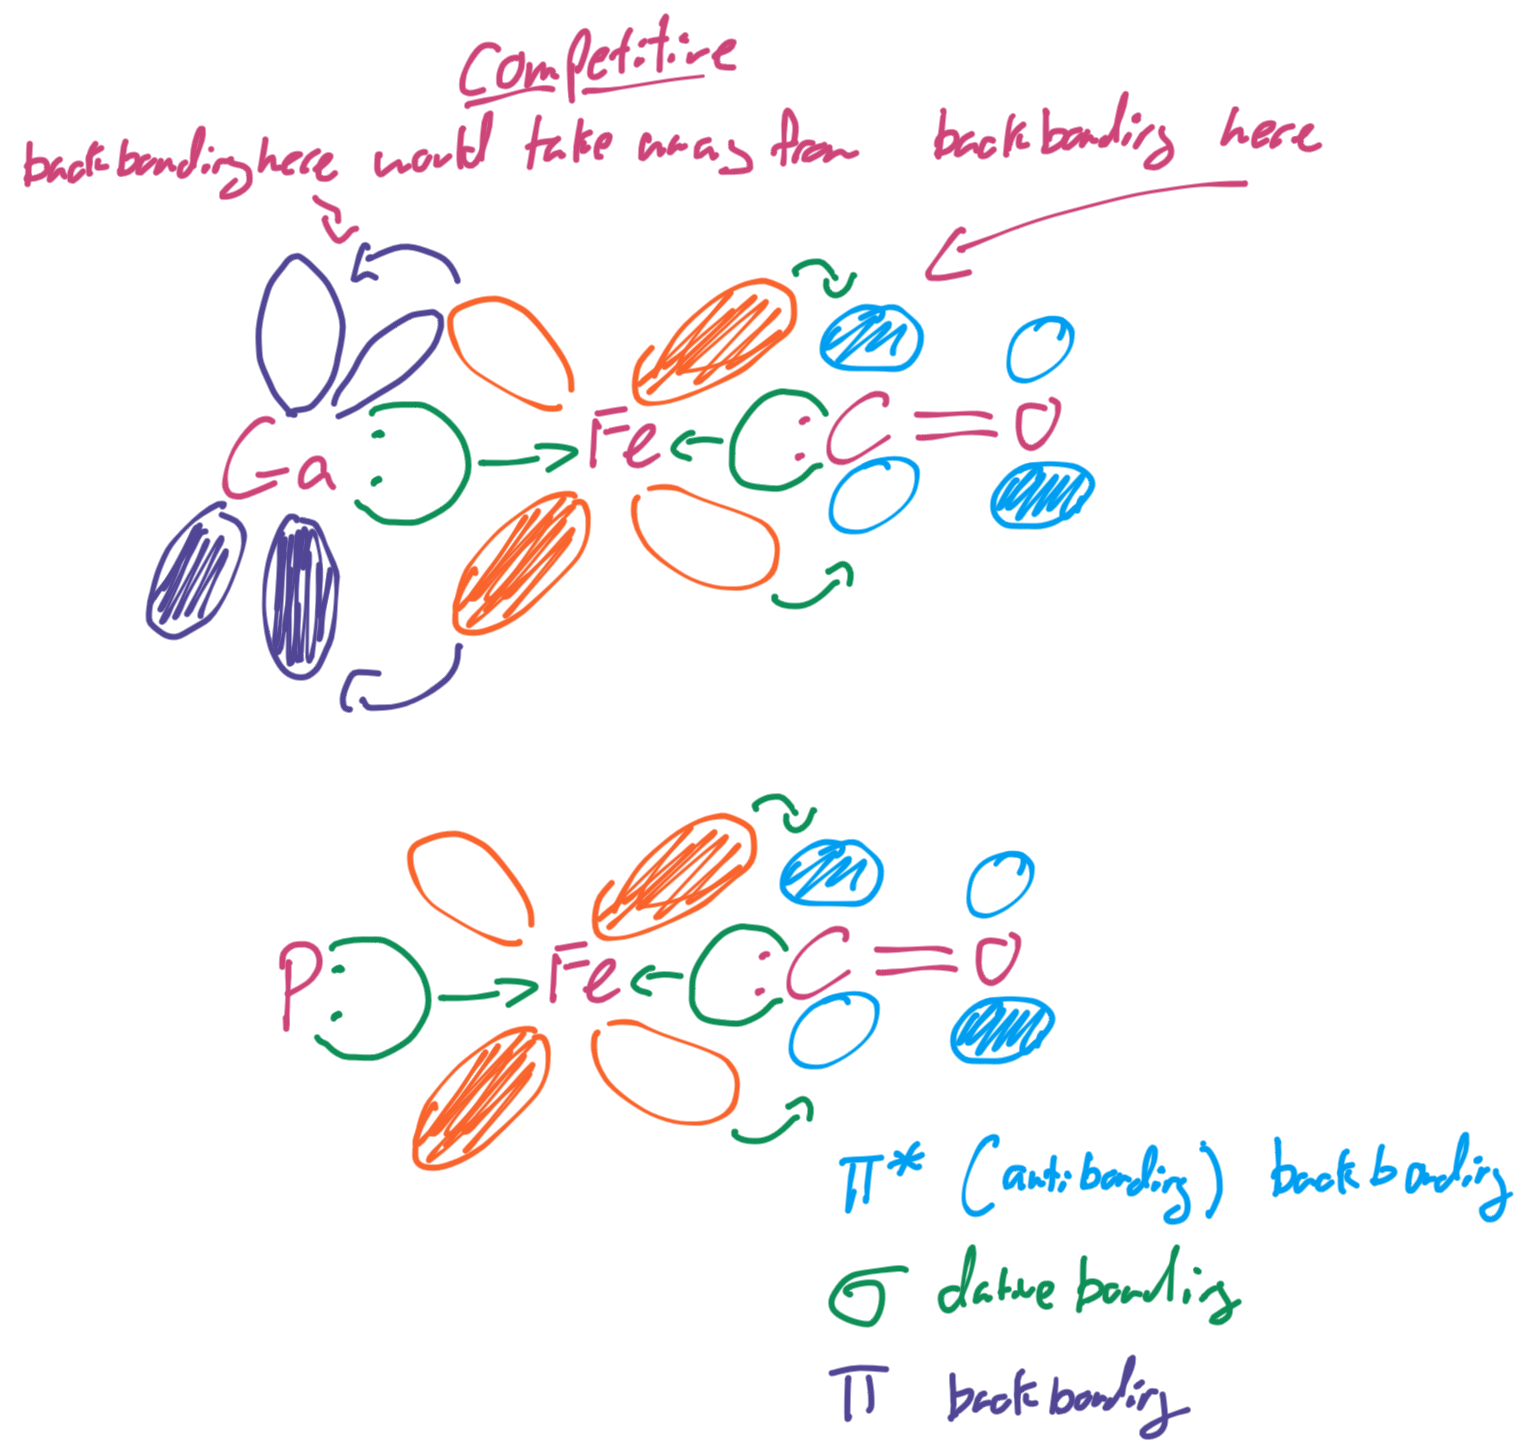 Competitive
backbonding here would take away from backbonding here
Ga : Fe : C = O
P : Fe : C = O
π* (antibonding) backbonding
σ dative bonding
π backbonding